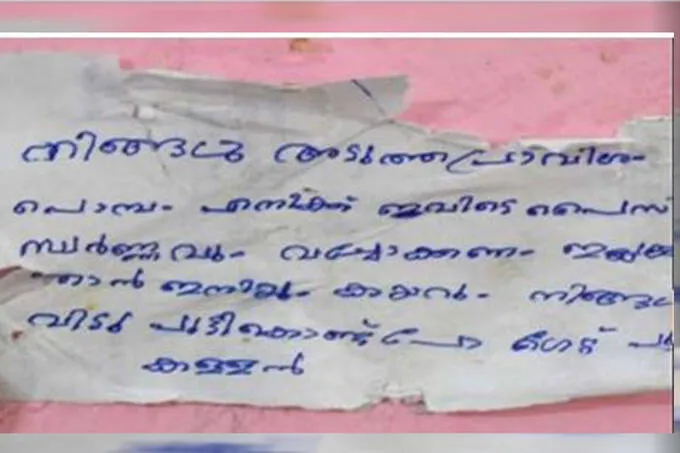 നിങ്ങൾ അടുത്തപ്രാവിശം
പൊമ്പം എനിക്ക് ഇവിടെ പൈസ
സ്വർണ്ണവും വയ്ക്കണം
ഞാൻ ഇനിയും കയറും നിങ്ങൾ
വിടു പുട്ടികൊണ്ട് പോ ഗേറ്റ്
കള്ളൻ